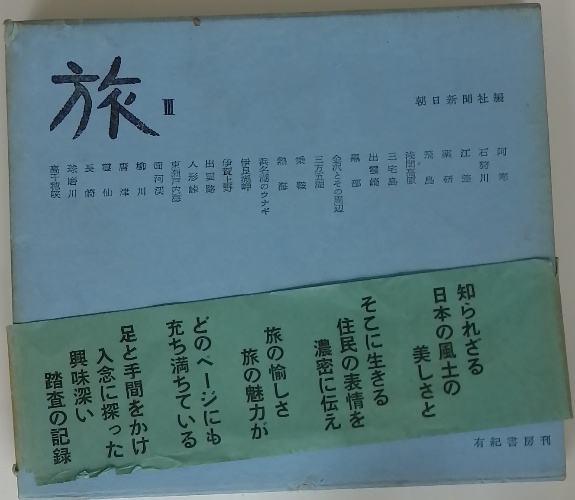 旅 III
朝日新聞社編
阿寒
石狩川
江差
飛島
浅間高原
三宅島
出雲崎
黒部
金沢とその周辺
三方五湖
乗鞍
熱海
浜名湖のウナギ
伊良湖岬
伊賀上野
出雲路
人形峠
東瀬戸内海
面河渓
柳川
唐津
雲仙
長崎
球磨川
高千穂峡
知られざる
日本の風土の
美しさと
そこに生きる
住民の表情を
濃密に伝え
旅の愉しさ
旅の魅力が
どのページにも
充ち満ちている
足と手間をかけ
入念に探った
興味深い
踏査の記録
有紀書房刊